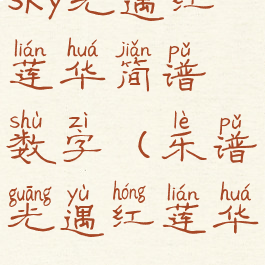 sky光遇红
lián huá jiǎn pǔ
莲华简谱
shù zì lè pǔ
数字（乐谱
guāng yù hóng lián huá
光遇红莲华